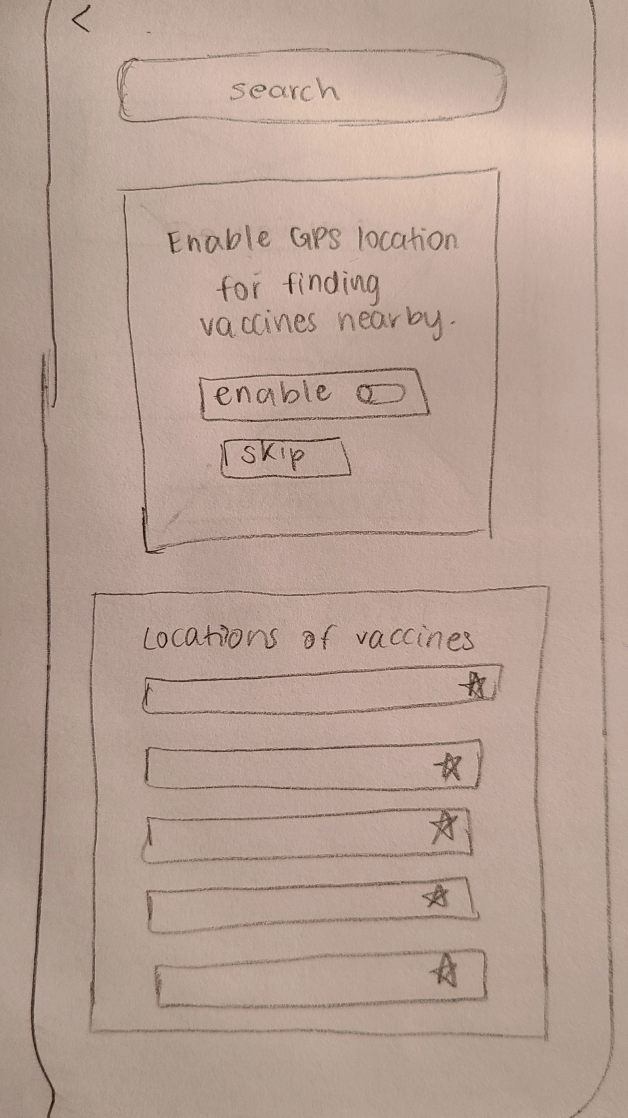 <
search
Enable GPS location
for finding
vaccines nearby.
enable
skip
Locations of vaccines